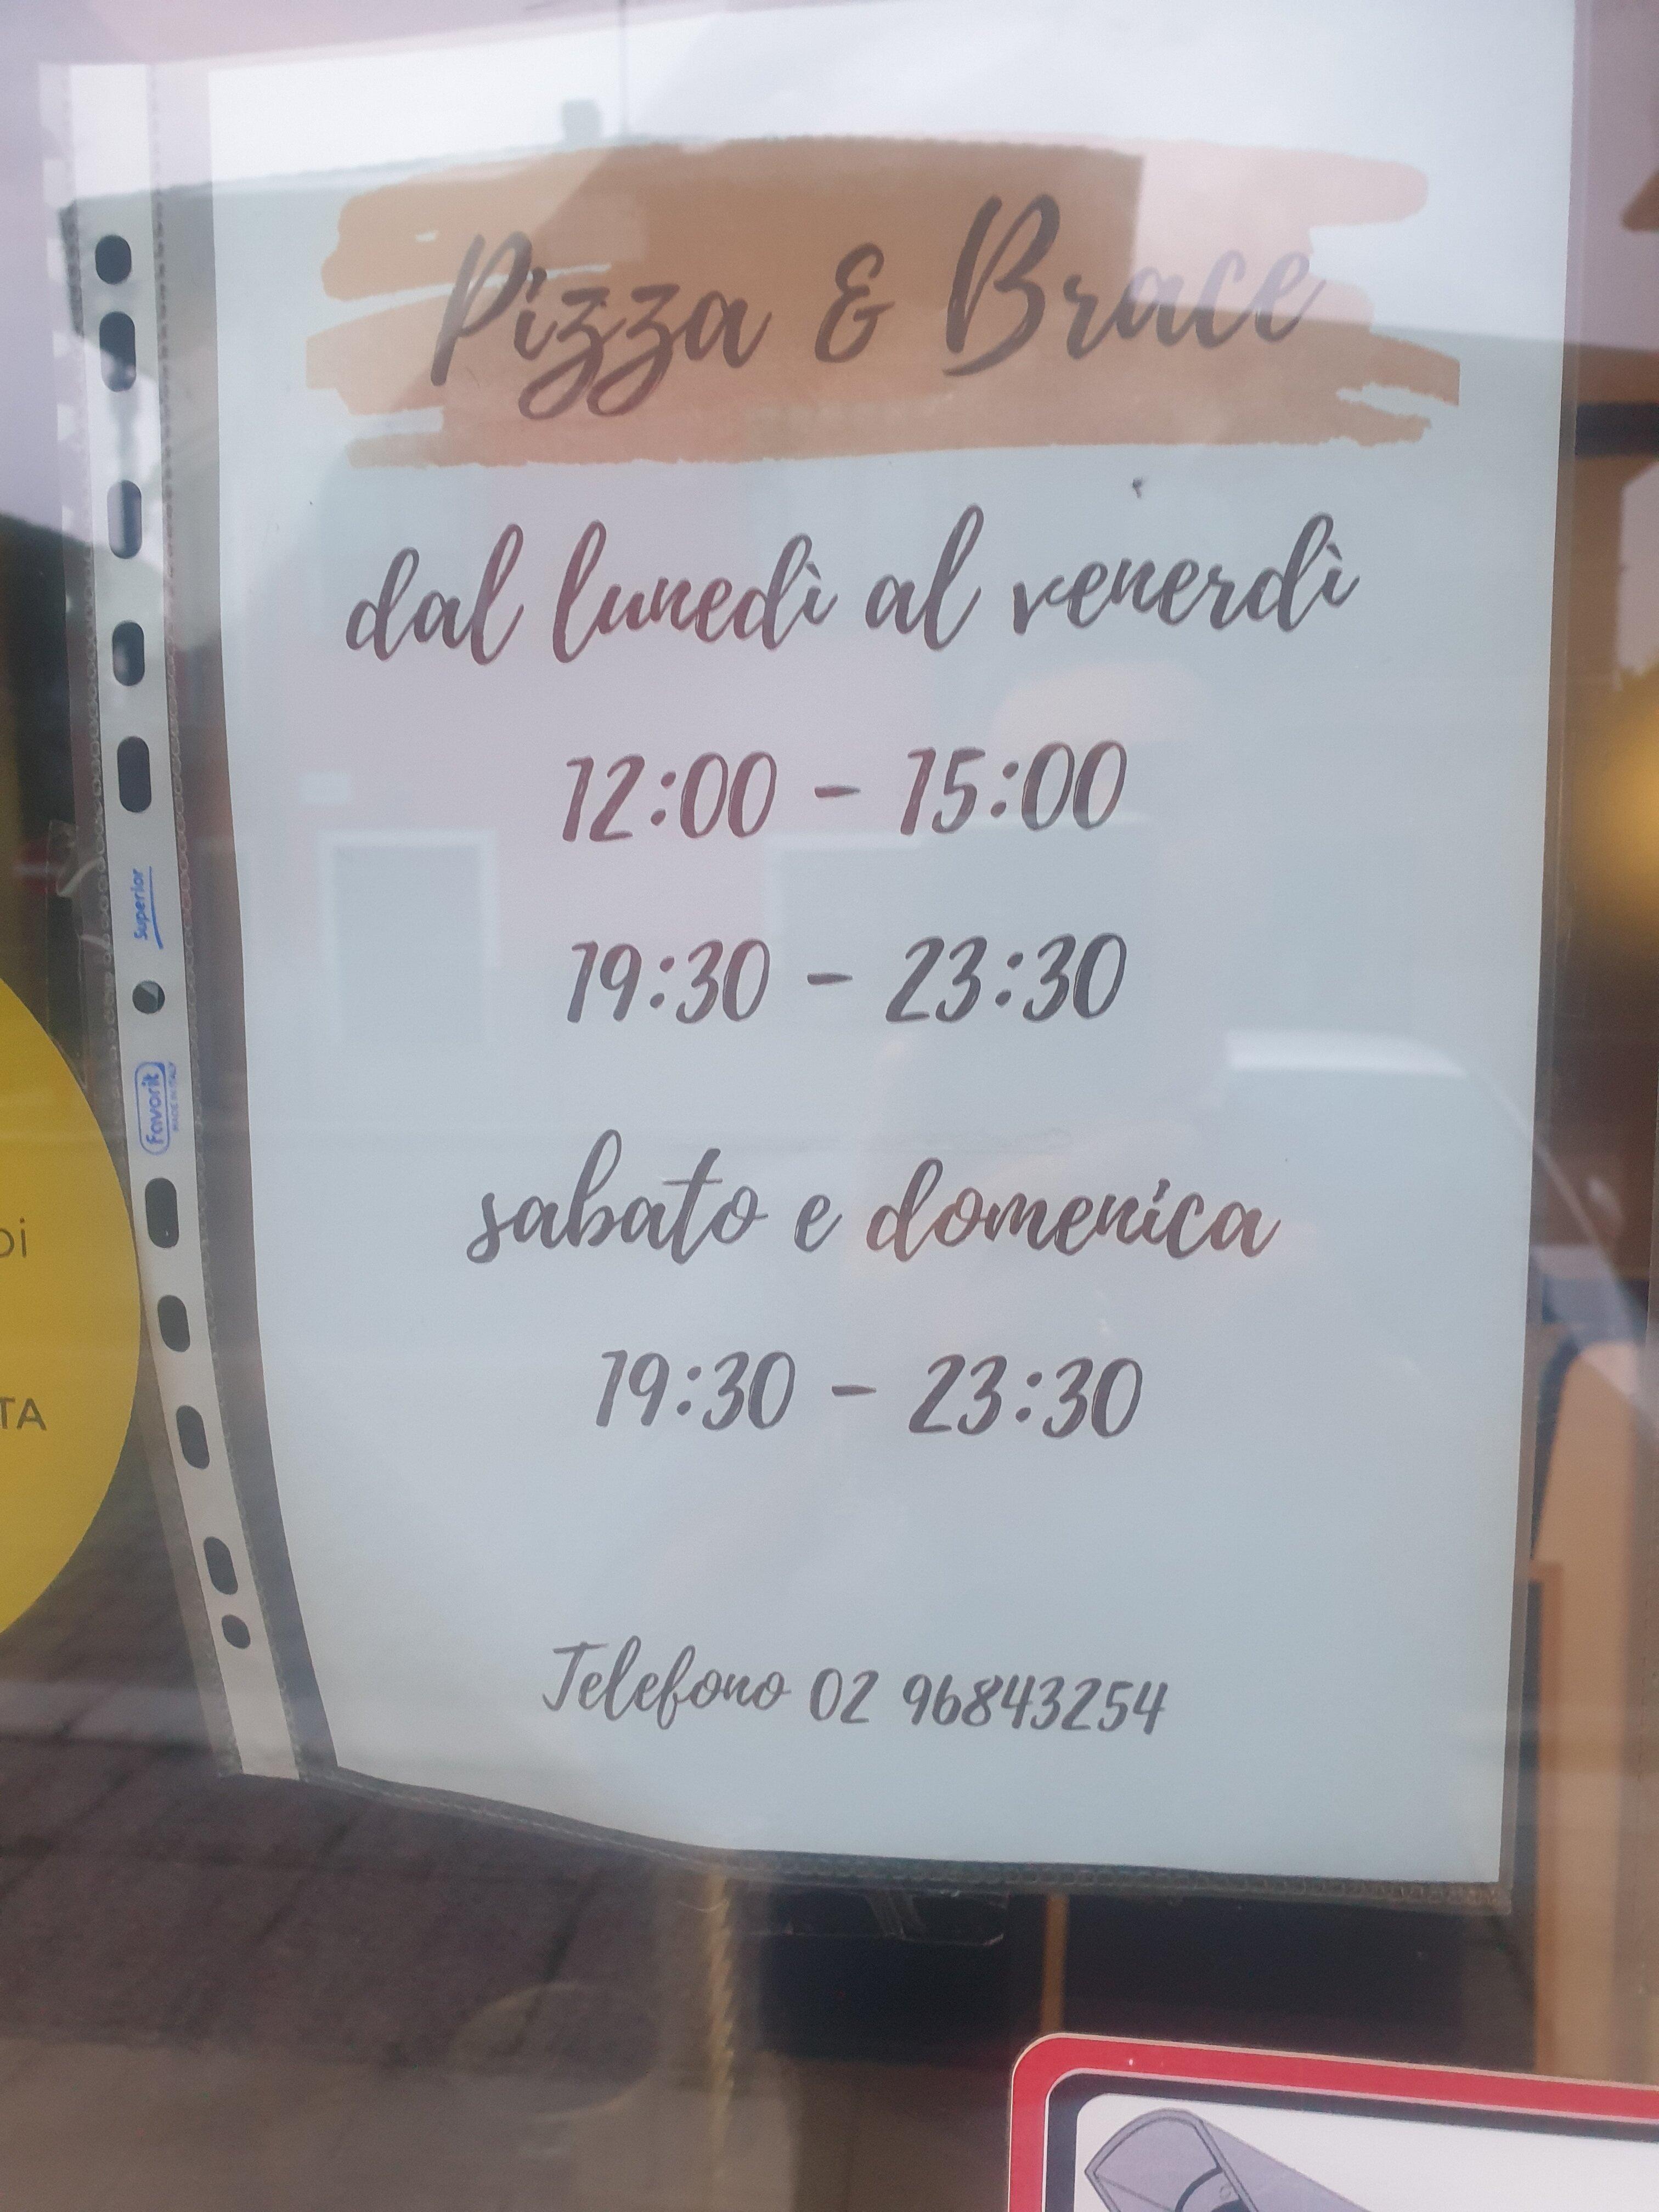 Pizza & Brace
dal lunedì al venerdì
12:00 - 15:00
19:30 - 23:30
sabato e domenica
19:30 - 23:30
Telefono 02 96843254
Superior
Favorit
MADE IN ITALY
TA